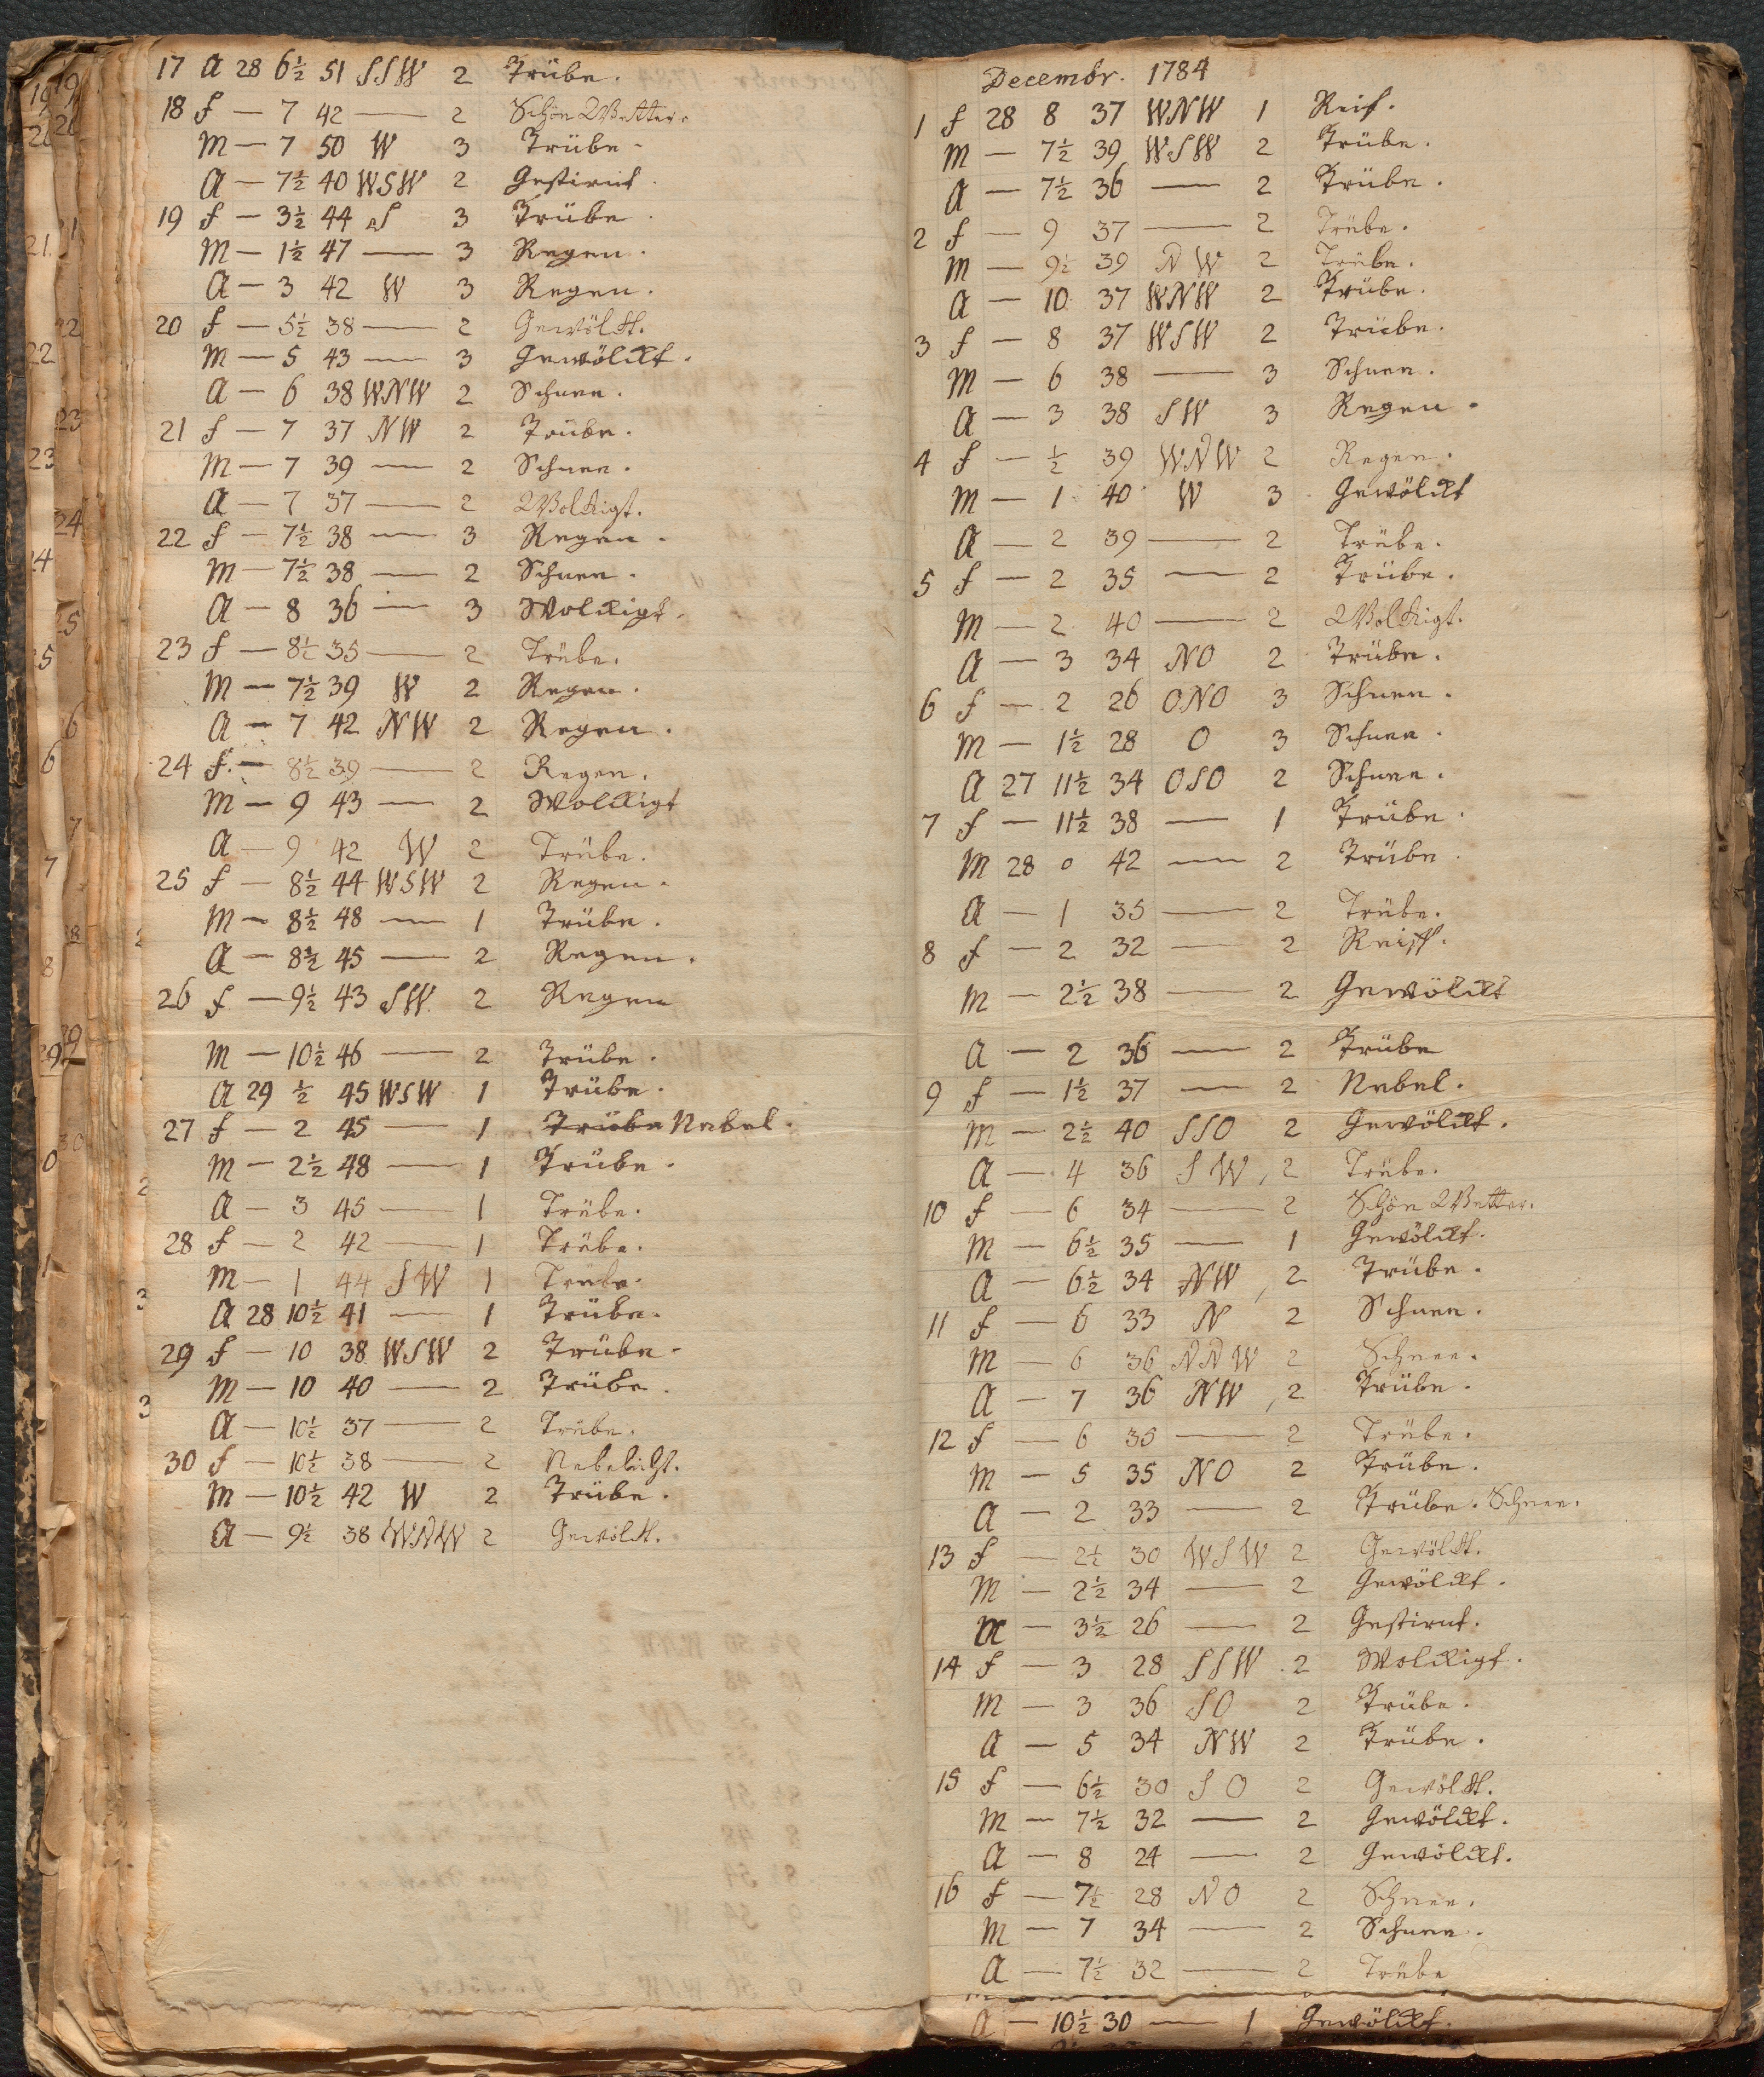 17 A 28 6½ 51 SSW 2 Trübe.
18 f — 7 42 — 2 Schön Wetter.
M — 7 50 W 3 Trübe.
A — 7½ 40 WSW 2 Gestirnt.
19 f — 3½ 44 S 3 Trübe.
M — 1½ 47 — 3 Regen.
A — 3 42 W 3 Regen.
20 f — 5½ 38 — 2 Gewölkt.
M — 5 43 — 3 Gewölckt.
A — 6 38 WNW 2 Schnee.
21 f — 7 37 NW 2 Trübe.
M — 7 39 — 2 Schnee.
A — 7 37 — 2 Wolkigt.
22 f — 7½ 38 — 3 Regen.
M — 7½ 38 — 2 Schnee.
A — 8 36 — 3 Wolckigt.
23 f — 8½ 35 — 2 Trübe.
M — 7½ 39 W 2 Regen.
A — 7 42 NW 2 Regen.
24 f. — 8½ 39 — 2 Regen.
M — 9 43 — 2 Wolckigt
A — 9 42 W 2 Trübe.
25 f — 8½ 44 WSW 2 Regen.
M — 8½ 48 — 1 Trübe.
A — 8½ 45 — 2 Regen.
26 f — 9½ 43 SW 2 Regen
M — 10½ 46 — 2 Trübe.
A 29 ½ 45 WSW 1 Trübe.
27 f — 2 45 — 1 Trübe Nebel.
M — 2½ 48 — 1 Trübe.
A — 3 45 — 1 Trübe.
28 f — 2 42 — 1 Trübe.
M — 1 44 SW 1 Trübe.
A 28 10½ 41 — 1 Trübe.
29 f — 10 38 WSW 2 Trübe.
M — 10 40 — 2 Trübe.
A — 10½ 37 — 2 Trübe.
30 f — 10½ 38 — 2 Nebelicht.
M — 10½ 42 W 2 Trübe.
A — 9½ 38 WNW 2 Gewölkt.
Decembr. 1784
1 f 28 8 37 WNW 1 Reif.
M — 7½ 39 WSW 2 Trübe.
A — 7½ 36 — 2 Trübe.
2 f — 9 37 — 2 Trübe.
M — 9½ 39 NW 2 Trübe.
A — 10 37 WNW 2 Trübe.
3 f — 8 37 WSW 2 Trübe.
M — 6 38 — 3 Schnee.
A — 3 38 SW 3 Regen.
4 f — ½ 39 WNW 2 Regen.
M — 1 40 W 3 Gewölckt
A — 2 39 — 2 Trübe.
5 f — 2 35 — 2 Trübe.
M — 2 40 — 2 Wolkigt.
A — 3 34 NO 2 Trübe.
6 f — 2 26 ONO 3 Schnee.
M — 1½ 28 O 3 Schnee.
A 27 11½ 34 OSO 2 Schnee.
7 f — 11½ 38 — 1 Trübe.
M 28 0 42 — 2 Trübe.
A — 1 35 — 2 Trübe.
8 f — 2 32 — 2 Reiff.
M — 2½ 38 — 2 Gewölckt
A — 2 36 — 2 Trübe
9 f — 1½ 37 — 2 Nebel.
M — 2½ 40 SSO 2 Gewölckt.
A — 4 36 SW, 2 Trübe.
10 f — 6 34 — 2 Schön Wetter.
M — 6½ 35 — 1 Gewölckt.
A — 6½ 34 NW, 2 Trübe.
11 f — 6 33 N 2 Schnee.
M — 6 36 NNW 2 Schnee.
A — 7 36 NW, 2 Trübe.
12 f — 6 35 — 2 Trübe.
M — 5 35 NO 2 Trübe.
A — 2 33 — 2 Trübe. Schnee.
13 f — 2½ 30 WSW 2 Gewölkt.
M — 2½ 34 — 2 Gewölckt.
A — 3½ 26 — 2 Gestirnt.
14 f — 3 28 SSW 2 Wolckigt.
M — 3 36 SO 2 Trübe.
A — 5 34 NW 2 Trübe.
15 f — 6½ 30 SO 2 Gewölkt.
M — 7½ 32 — 2 Gewölckt.
A — 8 24 — 2 Gewölckt.
16 f — 7½ 28 NO 2 Schnee.
M — 7 34 — 2 Schnee.
A — 7½ 32 — 2 Trübe
A — 10½ 30 — 1 Gewölckt.